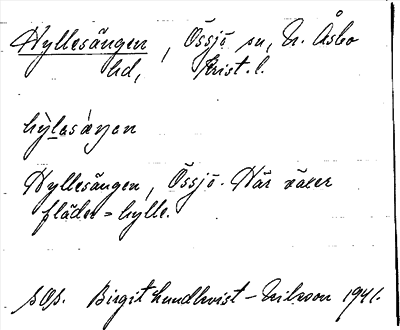 Hyllesängen, Össjö sn, N. Åsbo
hd, Krist. l.
Hyllesängen, Össjö. Här växer
fläder = hylle.
sOp. Birgit Lundkvist-Nilsson 1941.